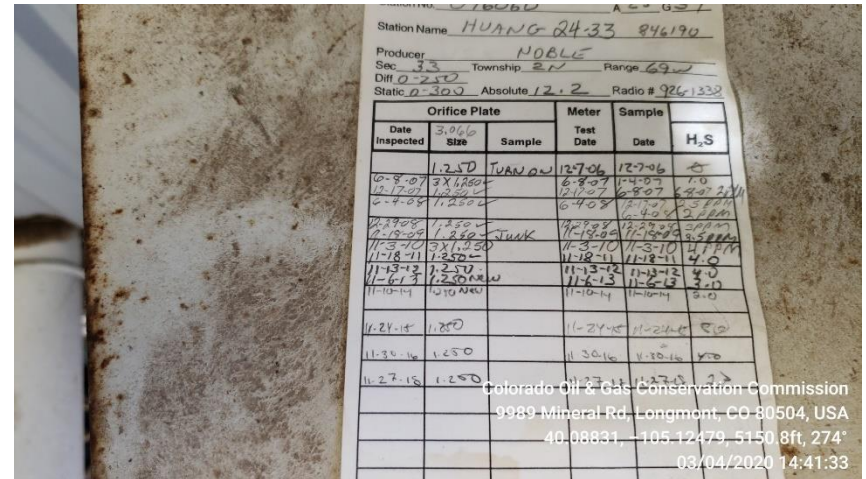 Station Name HUANG 24-33 846190
Producer NOBLE
Sec 33 Township 2N Range 69W
Diff 0-250
Static 0-300 Absolute 12.2 Radio # 926-1338
Orifice Plate Meter Sample
Date Inspected 3.066 Size Sample Test Date Date H2S
1.250 TURN ON 12-7-06 12-7-06
6-8-07 3X1.250 6-8-07 1-4-07 1.0
12-17-07 1.250 12-17-07 6-8-07 6-8-07
6-4-08 1.250 6-4-08 12-17-07 2.5 PPM
6-4-08 2 PPM
12-29-08 1.250 12-29-08 12-29-08 2PPM
11-18-09 1.250 JUNK 11-18-09 11-18-09
11-3-10 3X1.250 11-3-10 11-3-10 4 PPM
11-18-11 1.250 11-18-11 11-18-11 4.0
11-13-12 1.250 11-13-12 11-13-12 4.0
11-6-13 1.250 NEW 11-6-13 11-6-13 3.0
11-10-14 1.250 New 11-10-14 11-10-14 3.0
11-24-15 1.250 11-24-15 11-24-15
11-30-16 1.250 11-30-16 11-30-16
11-27-18 1.250 11-27-18 11-27-18
Colorado Oil & Gas Conservation Commission
9989 Mineral Rd, Longmont, CO 80504, USA
40.08831, -105.12479, 5150.8ft, 274°
03/04/2020 14:41:33